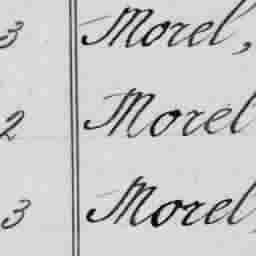 3 Morel,
2 Morel
3 Morel,